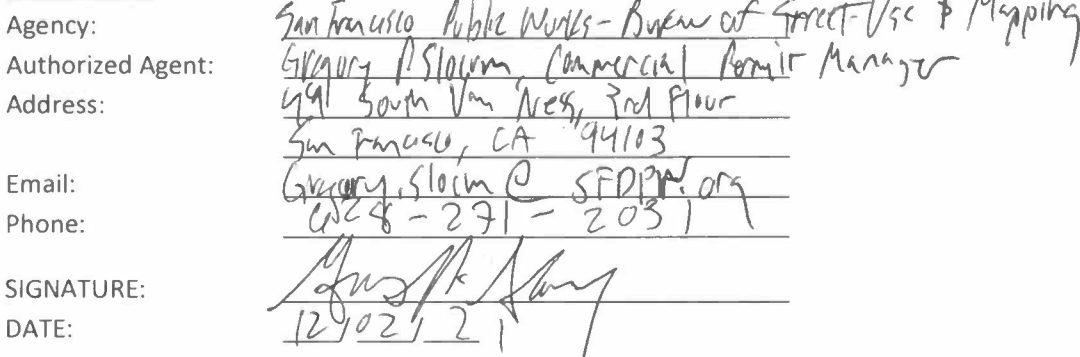 Agency: San Francisco Public Works - Bureau of Street-Use & Mapping
Authorized Agent: Gregory P Slocum, Commercial Permit Manager
Address: 49 South Van Ness, 3rd Floor
San Francisco, CA 94103
Email: Gregory.Slocum@SFDPW.org
Phone: 628-271-2031
SIGNATURE:
DATE: 12/02/21